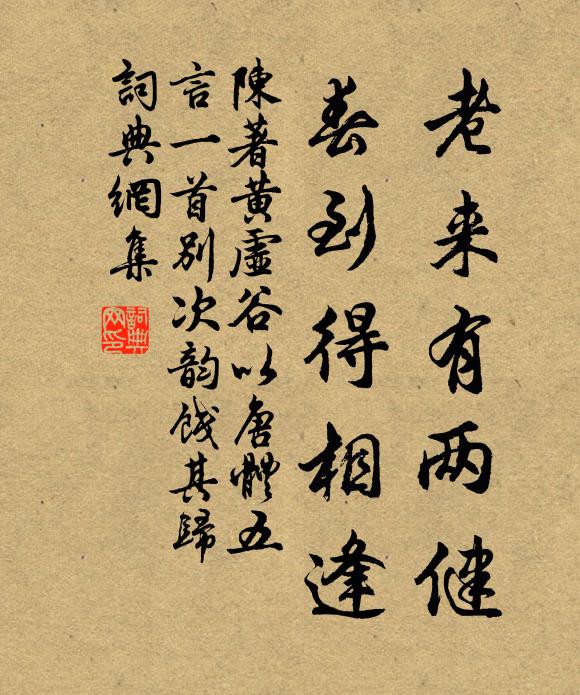 老来有两健
春到得相逢
陳著黄虛谷以唐體五
言一首别次韵餞其歸
詞典網集
詞典
网印